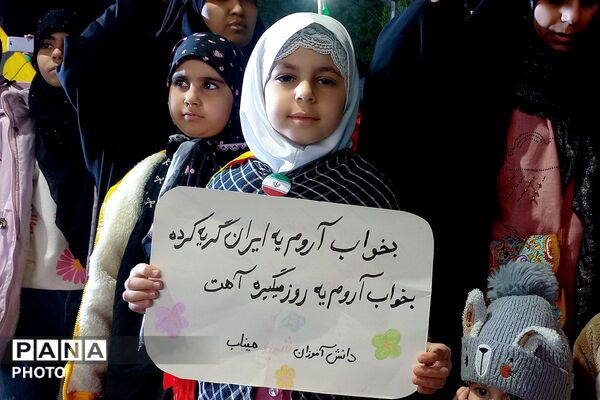 بخواب آروم یه ایران گریه کرده
بخواب آروم یه روز میگیره آهت
دانش آموزان شهید میناب
PANA
PHOTO